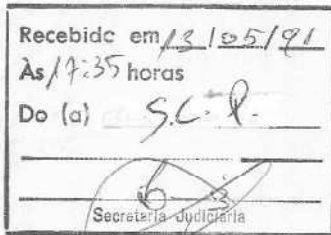 Recebido em 13/05/91
Às 17:35 horas
Do (a) S.C.P.
Secretaria Judiciária